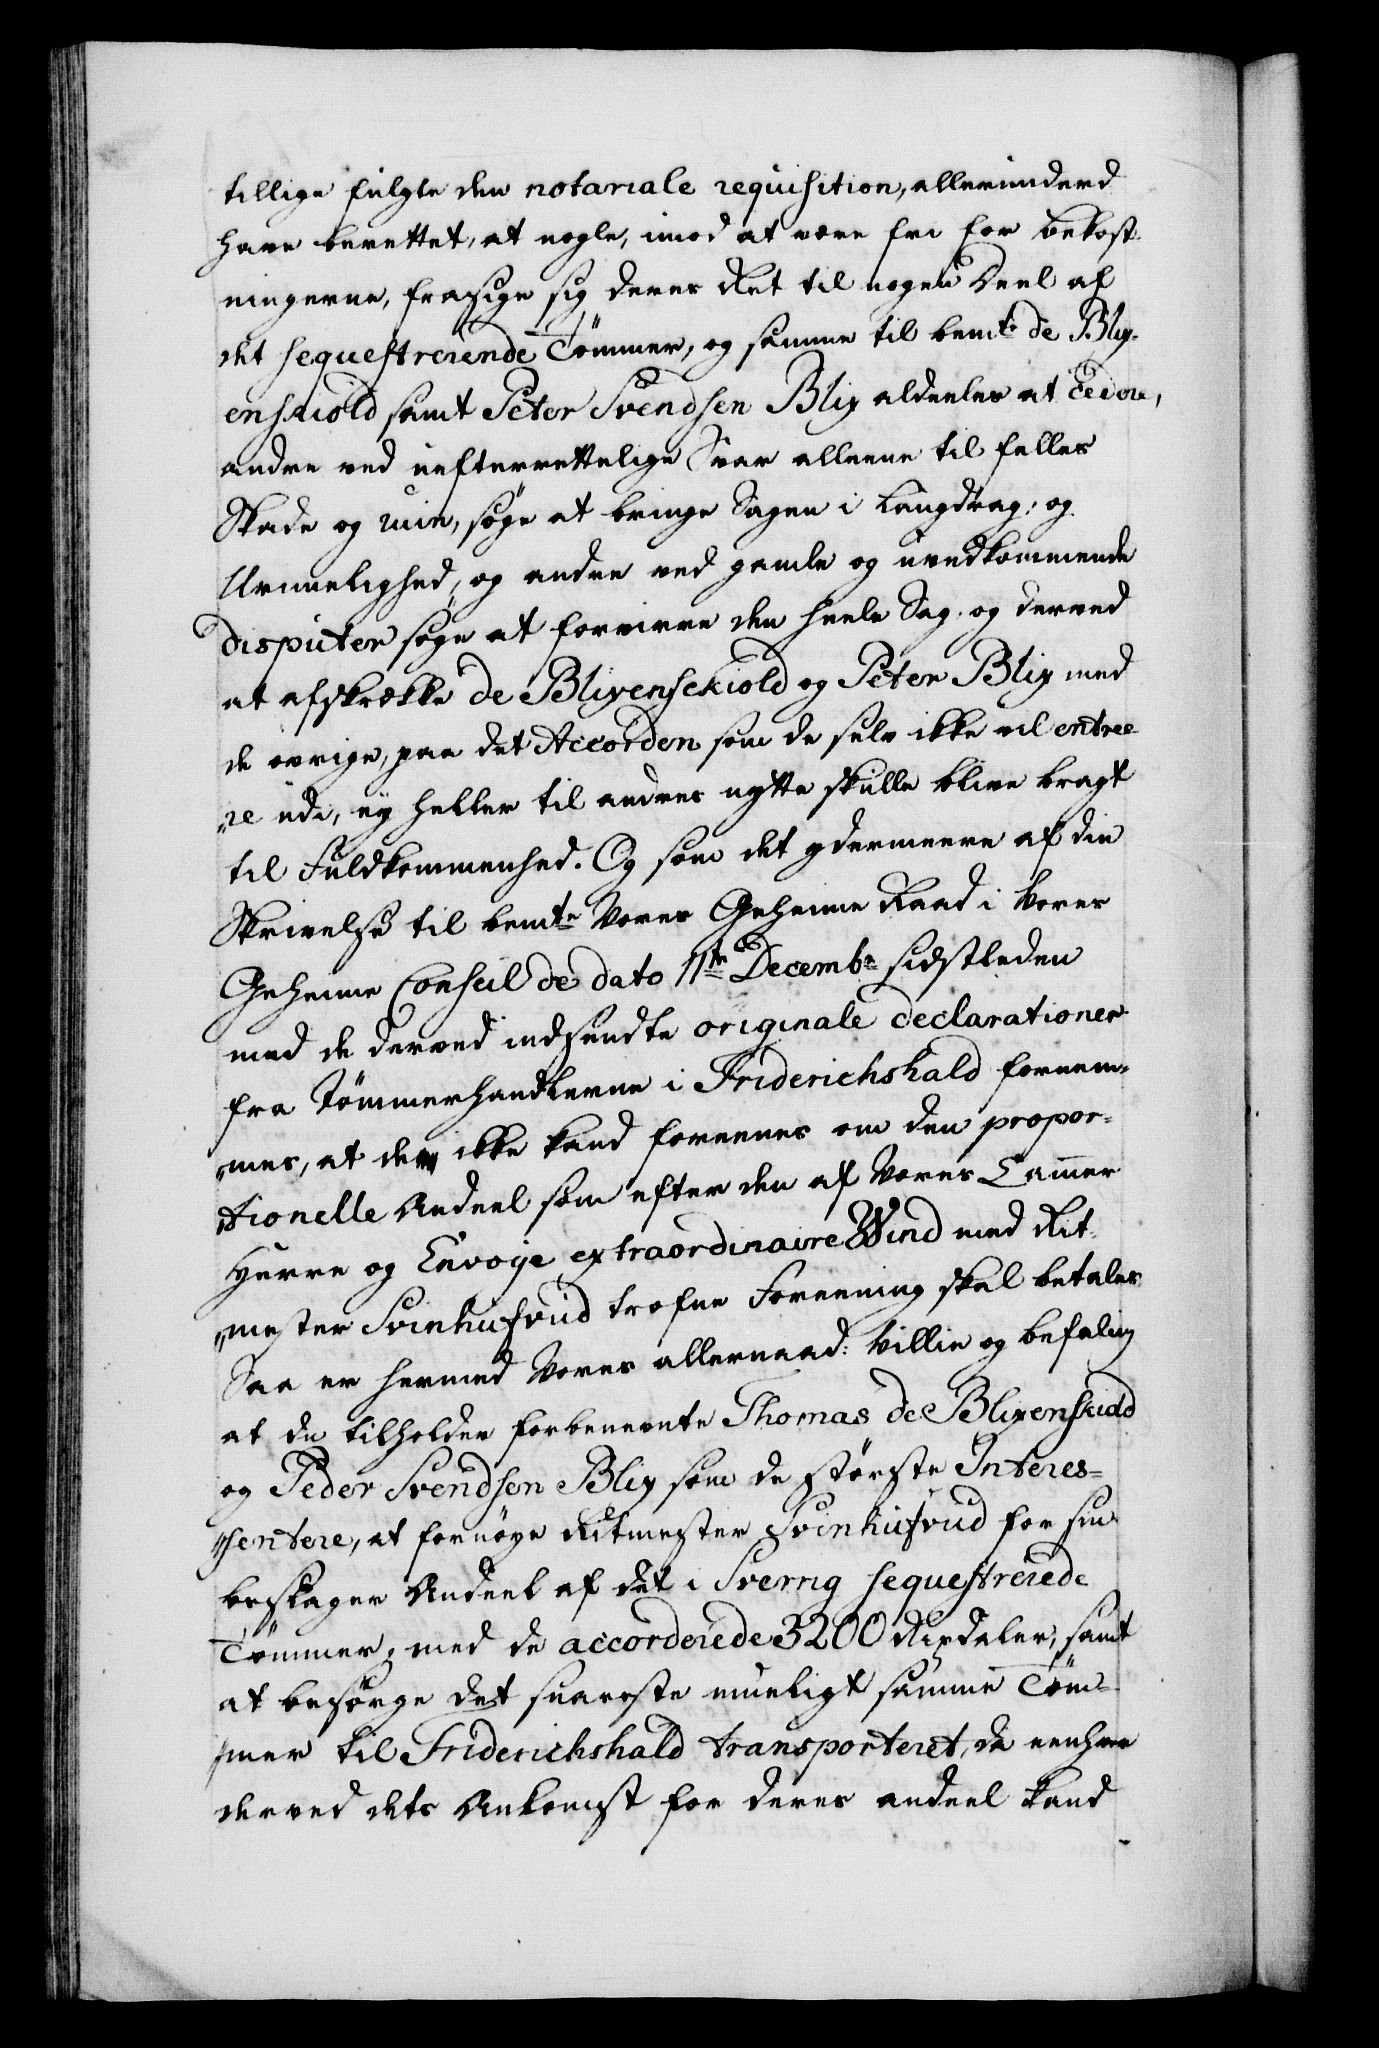 tillige fulgte den notariale requisition, allerunderd
have berettet, at nogle, imod at være fri for bekost-
ningerne, frasige sig deres Ret til nogen Deel af
det sequestrerende Tömmer, og samme til bemte de Blix-
enskiold samt Peter Svendsen Blix aldeeles at Cedere,
andre ved uefterrettelige Svar alleene til felles
Skade og ruin, søge at bringe Sagen i Langdrag, og
Urimelighed, og andre ved gamle og uvedkommende
disputer søge at forvirre den heele Sag, og derved
at afskrække de Blixenskiold og Peter Blix med
de øvrige, paa det Accorden som de selv ikke vil entree
re udi, ey heller til andres nytte skulle blive bragt
til Fuldkommenhed. Og som det ydermeere af din
Skrivelse til bemte Vores Geheime Raad i Vores
Geheime Conseil de dato 11te Decembr sidstleden
med de derved indsendte originale declarationer
fra Tømmerhandlerne i Friderichshald fornem-
mes, at de ikke kand foreenes om den propor-
tionelle Andeel som efter den af Vores Cammer
Herre og Envoye extraordinaire Wind med Rit-
mester Svinhufvud trofne Foreening skal betales
Saa er hermed Vores allernaad: Villie og befaling
at du tilholder forbenevnte Thomas de Blixenskiold
og Peder Svendsen Blix som de störste Interes-
sentere, at fornöye Ritmester Svinhufvud for sin
beslagne Andeel af det i Sverrig sequestrerede
Tømmer, med de accorderede 3200 Rixdaler, samt
at besørge det snareste mueligt samme Tøm-
mer til Friderichshald transporteret, da eenhver
derved dets Ankomst for deres andeel kand